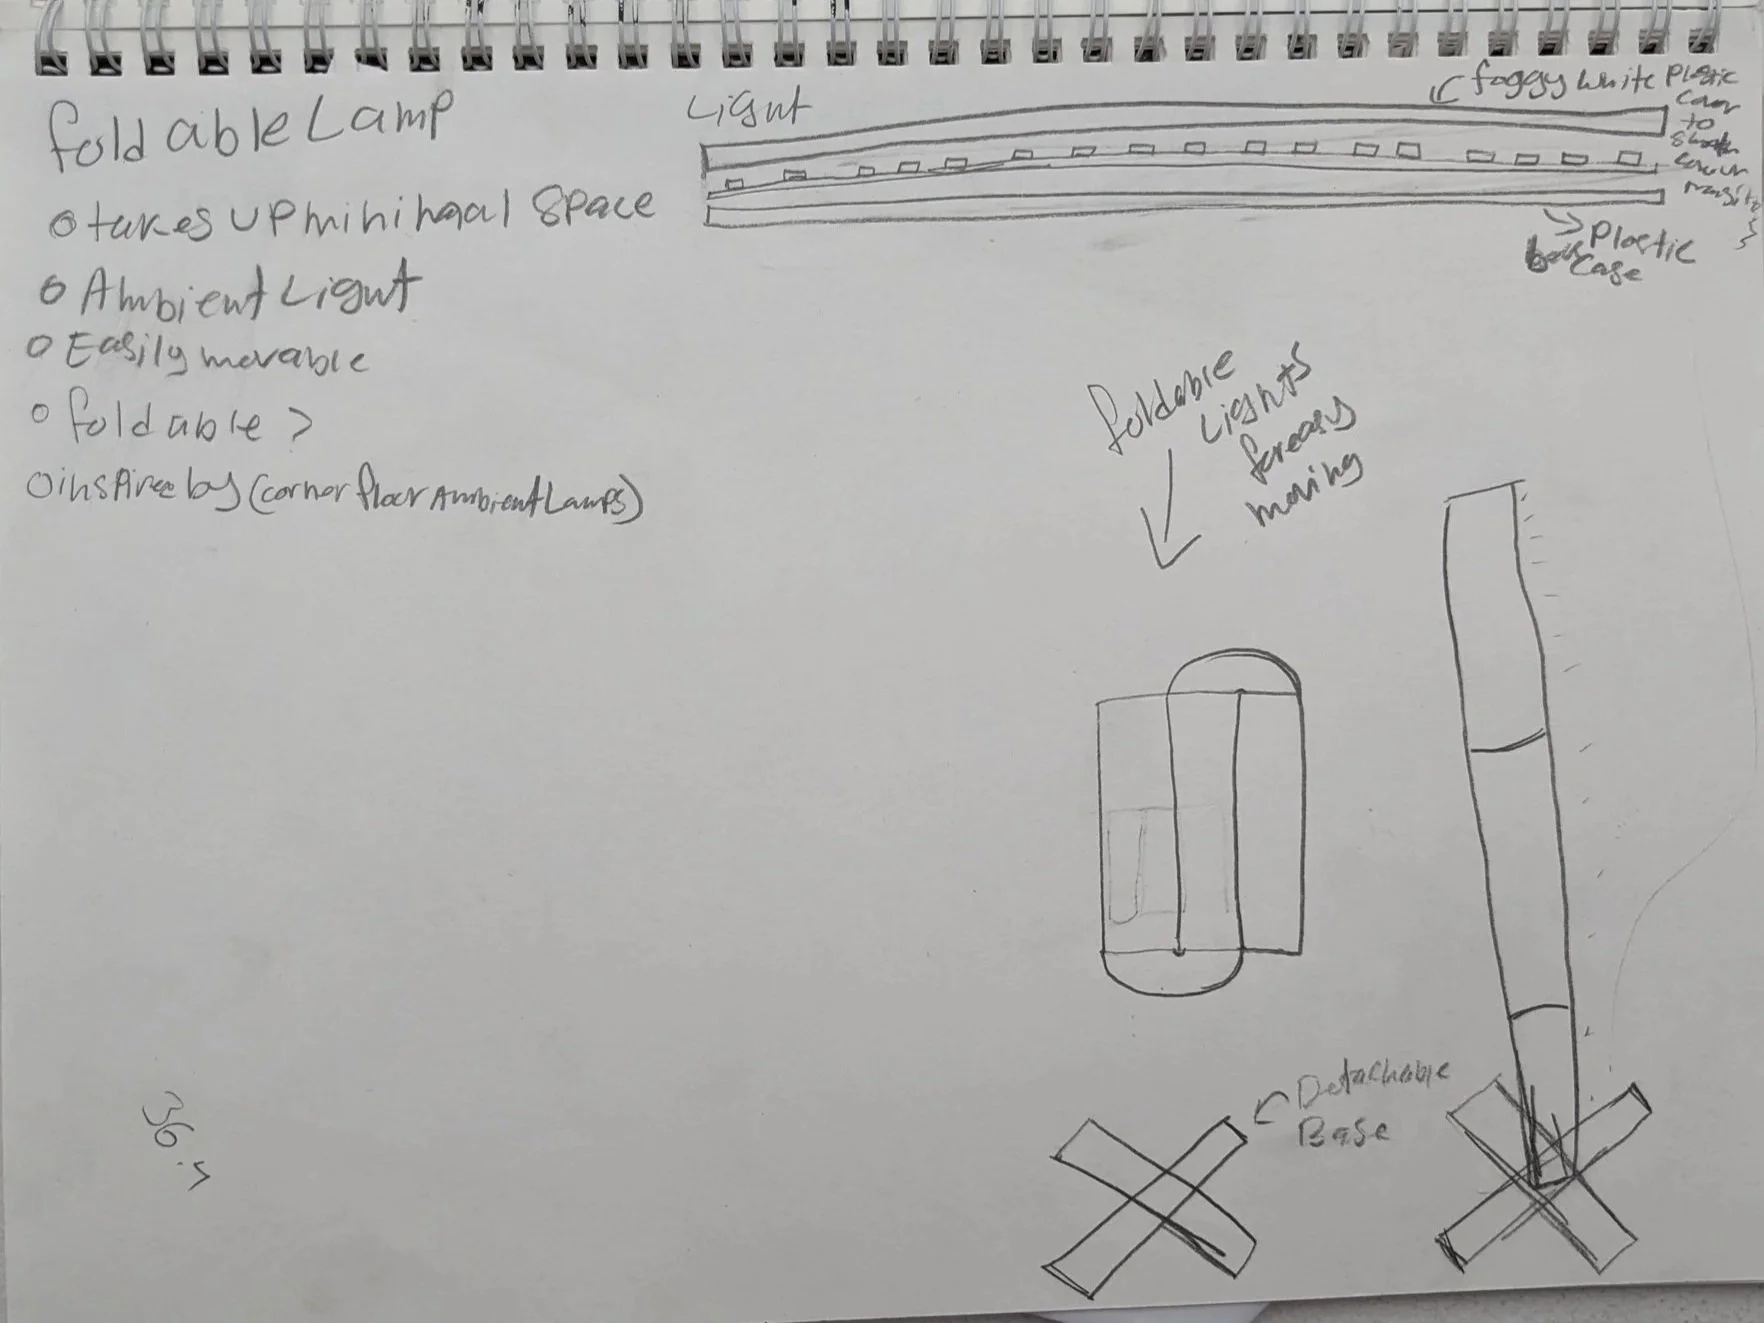 foldable Lamp
o takes up minimal space
o Ambient Light
o Easily movable
o foldable >
o inspiree by (corner floor Ambient Lamps)
Light
foggy white Plastic
to
Plastic
Case
foldable
Lights
for easy
moving
Detachable
Base
36